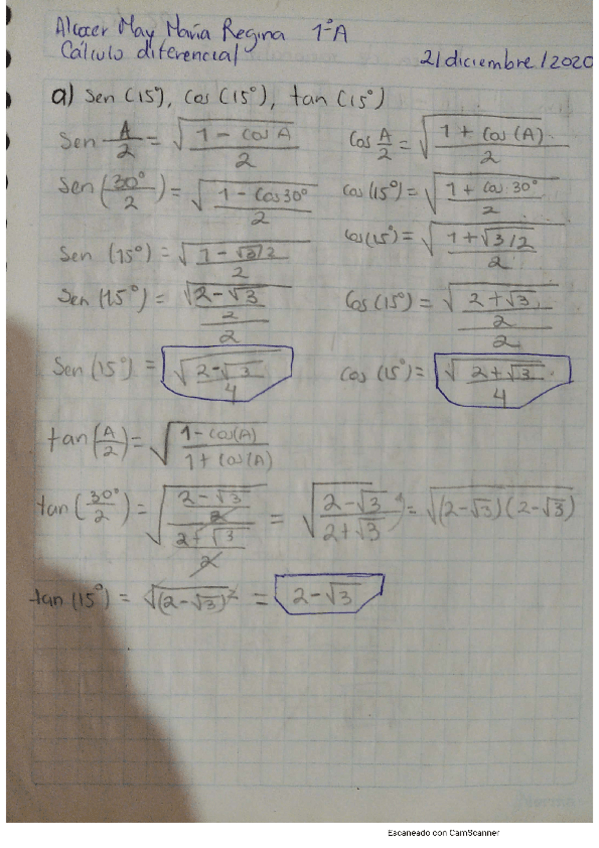 Alcocer May María Regina 1°A
Cálculo diferencial
21 diciembre / 2020
a) Sen (15°), Cos (15°), tan (15°)
Sen A/2 = √((1 - cos A)/2)
Sen (30°/2) = √((1 - Cos 30°)/2)
Sen (15°) = √((1 - √3/2)/2)
Sen (15°) = √(((2 - √3)/2)/2)
Sen (15°) = √((2 - √3)/4)
Cos A/2 = √((1 + Cos (A))/2)
Cos (15°) = √((1 + Cos 30°)/2)
Cos (15°) = √((1 + √3/2)/2)
Cos (15°) = √(((2 + √3)/2)/2)
Cos (15°) = √((2 + √3)/4)
tan (A/2) = √((1 - Cos (A))/(1 + Cos (A)))
tan (30°/2) = √(((2 - √3)/2)/((2 + √3)/2)) = √((2 - √3)/(2 + √3)) = √((2 - √3)(2 - √3))
tan (15°) = √((2 - √3)²) = 2 - √3
Escaneado con CamScanner